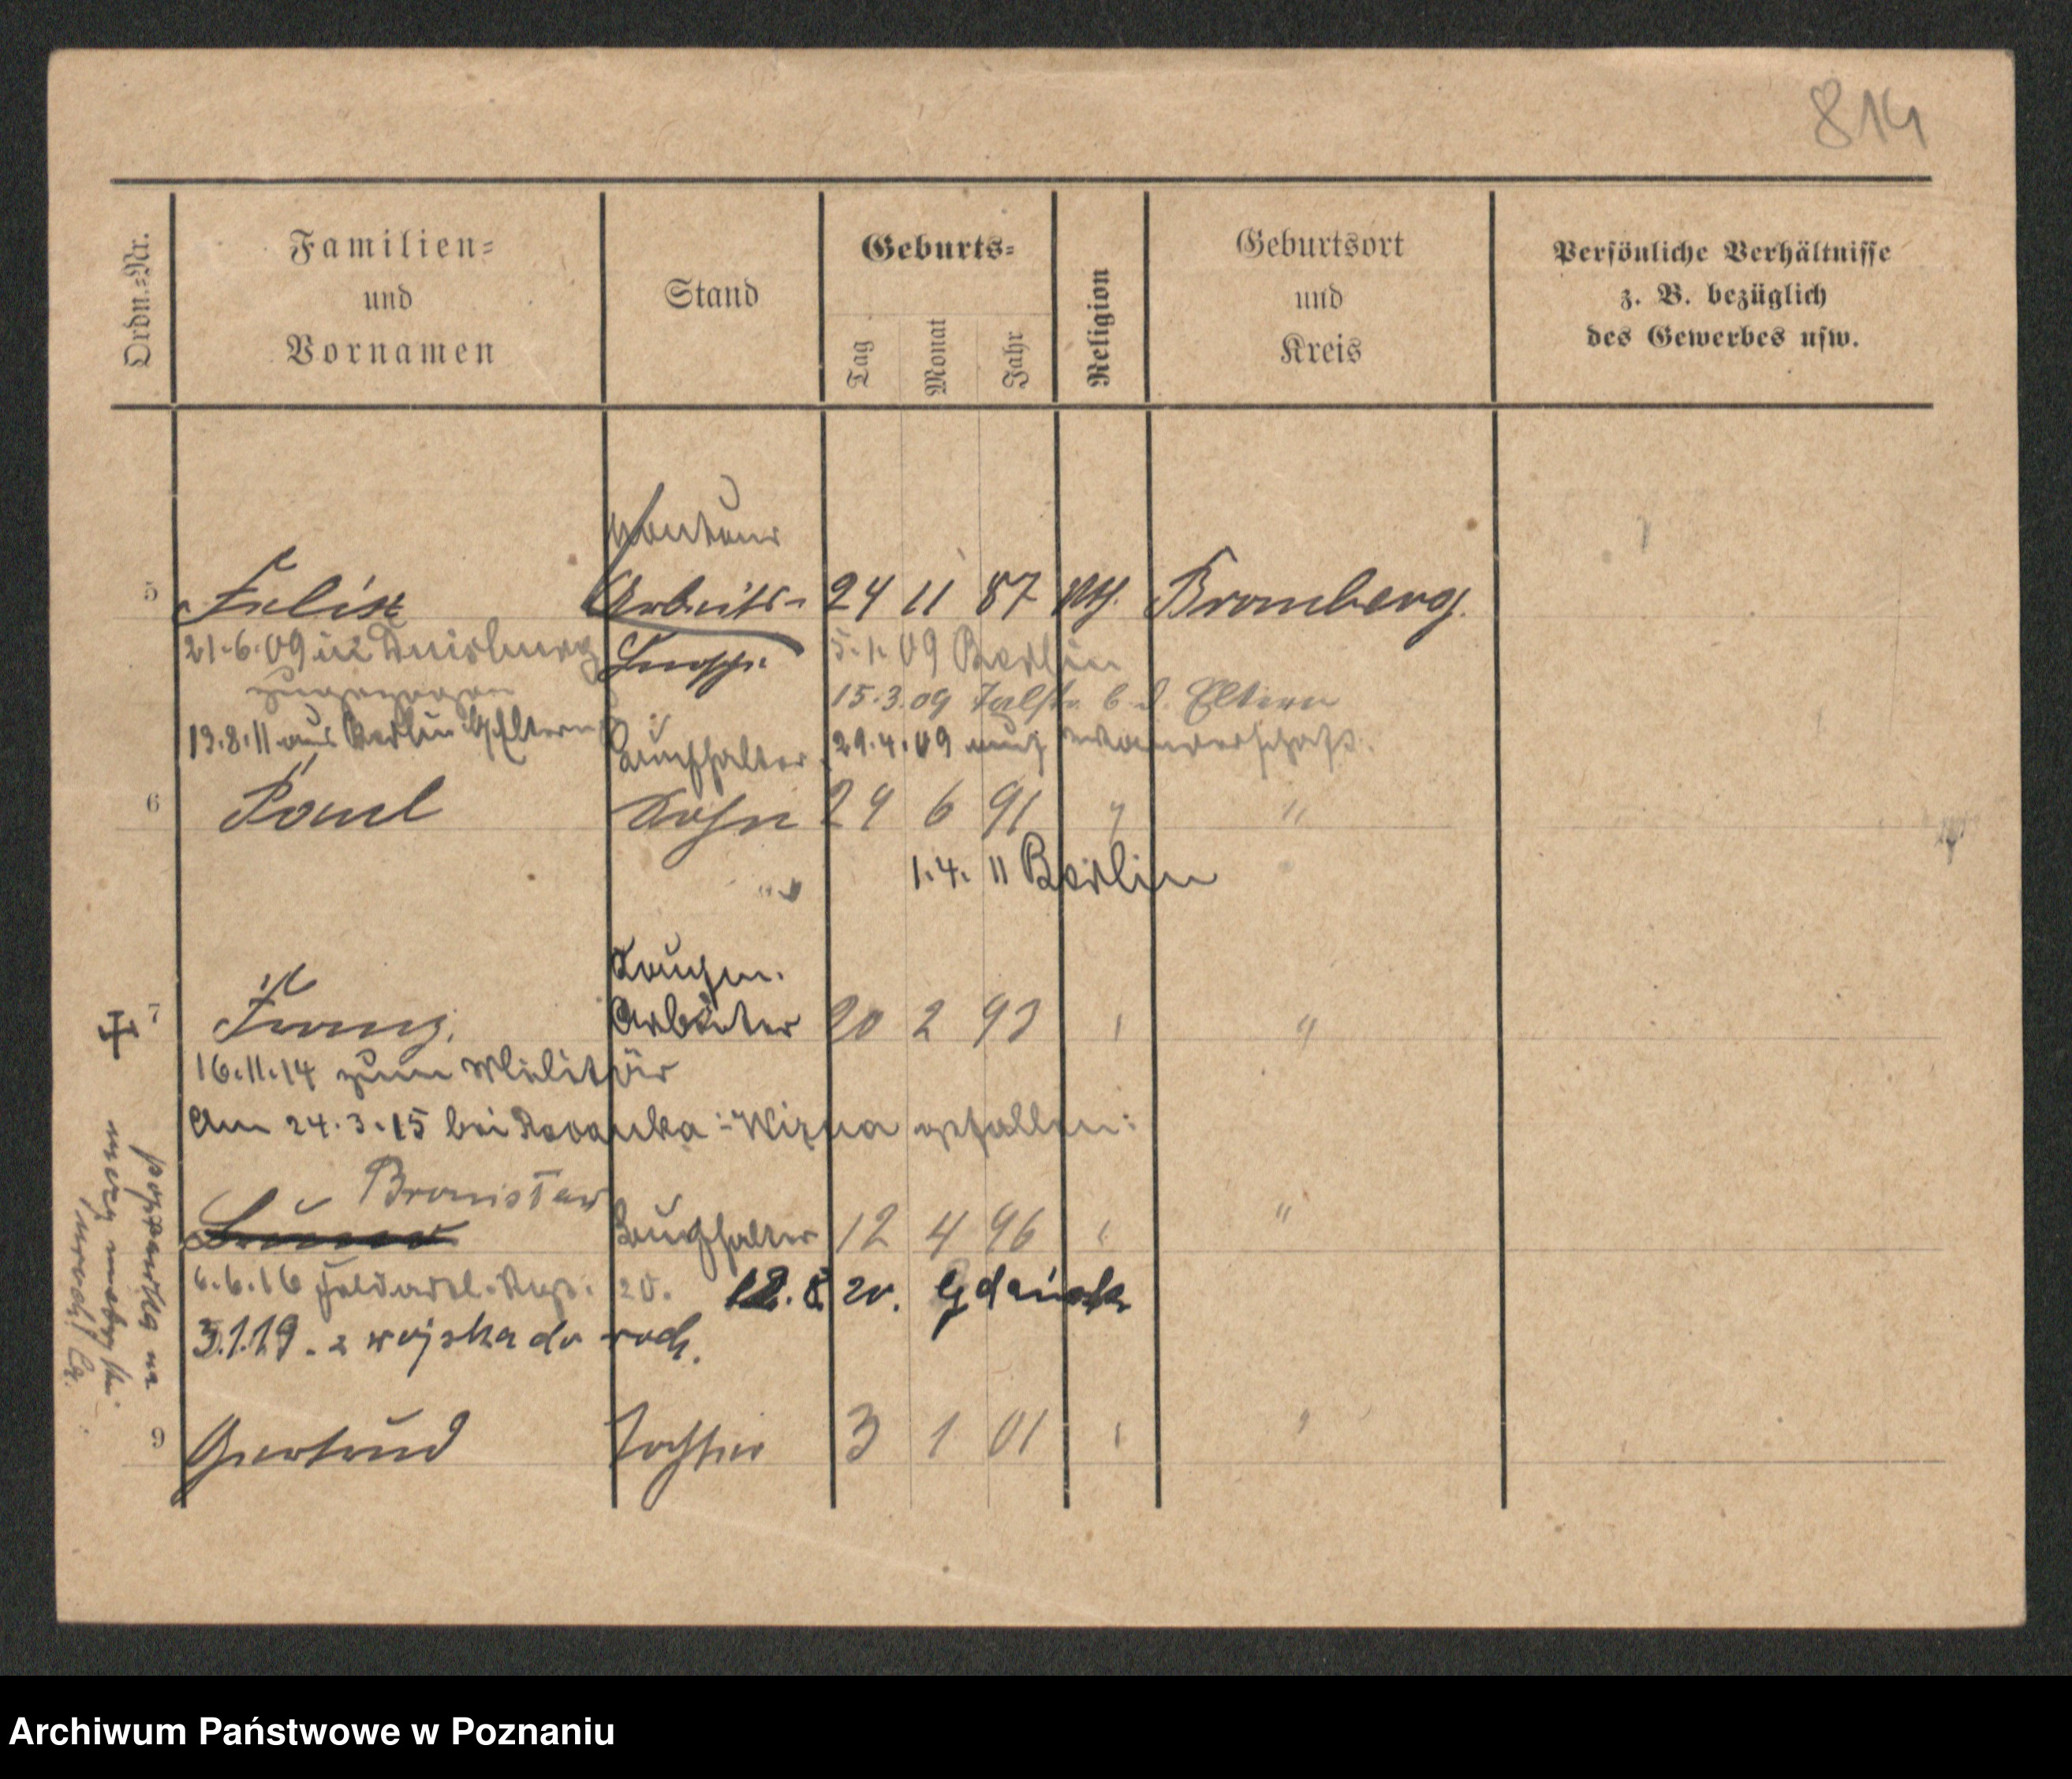 814
Ordn.-Nr.
Familien-
und
Vornamen
Stand
Geburts-
Tag
Monat
Jahr
Religion
Geburtsort
und
Kreis
Persönliche Verhältnisse
z. B. bezüglich
des Gewerbes usw.
Monteur
5 Felix Arbeits- 24 11 87 Bromberg.
21.6.09 in Duisburg 5.1.09 Berlin
zugezogen 15.3.09 Talstr. b. d. Eltern
13.8.11 aus Berlin Eltern Buchhalter 29.4.09 auf Wanderschaft.
6 Paul Sohn 24 6 91 " "
1.4. 11 Berlin
7 Franz. Arbeiter 20 2 93 " "
16.11.14 zum Militär
Am 24.3.15 bei gefallen:
Bronisław
Buchhalter 12 4 96 " "
6.6.16 Feldartl. 20. 12.8.20. Gdańsk
3.1.19. z wojska do rodz.
9 Gertrud Tochter 3 1 01 " "
Archiwum Państwowe w Poznaniu